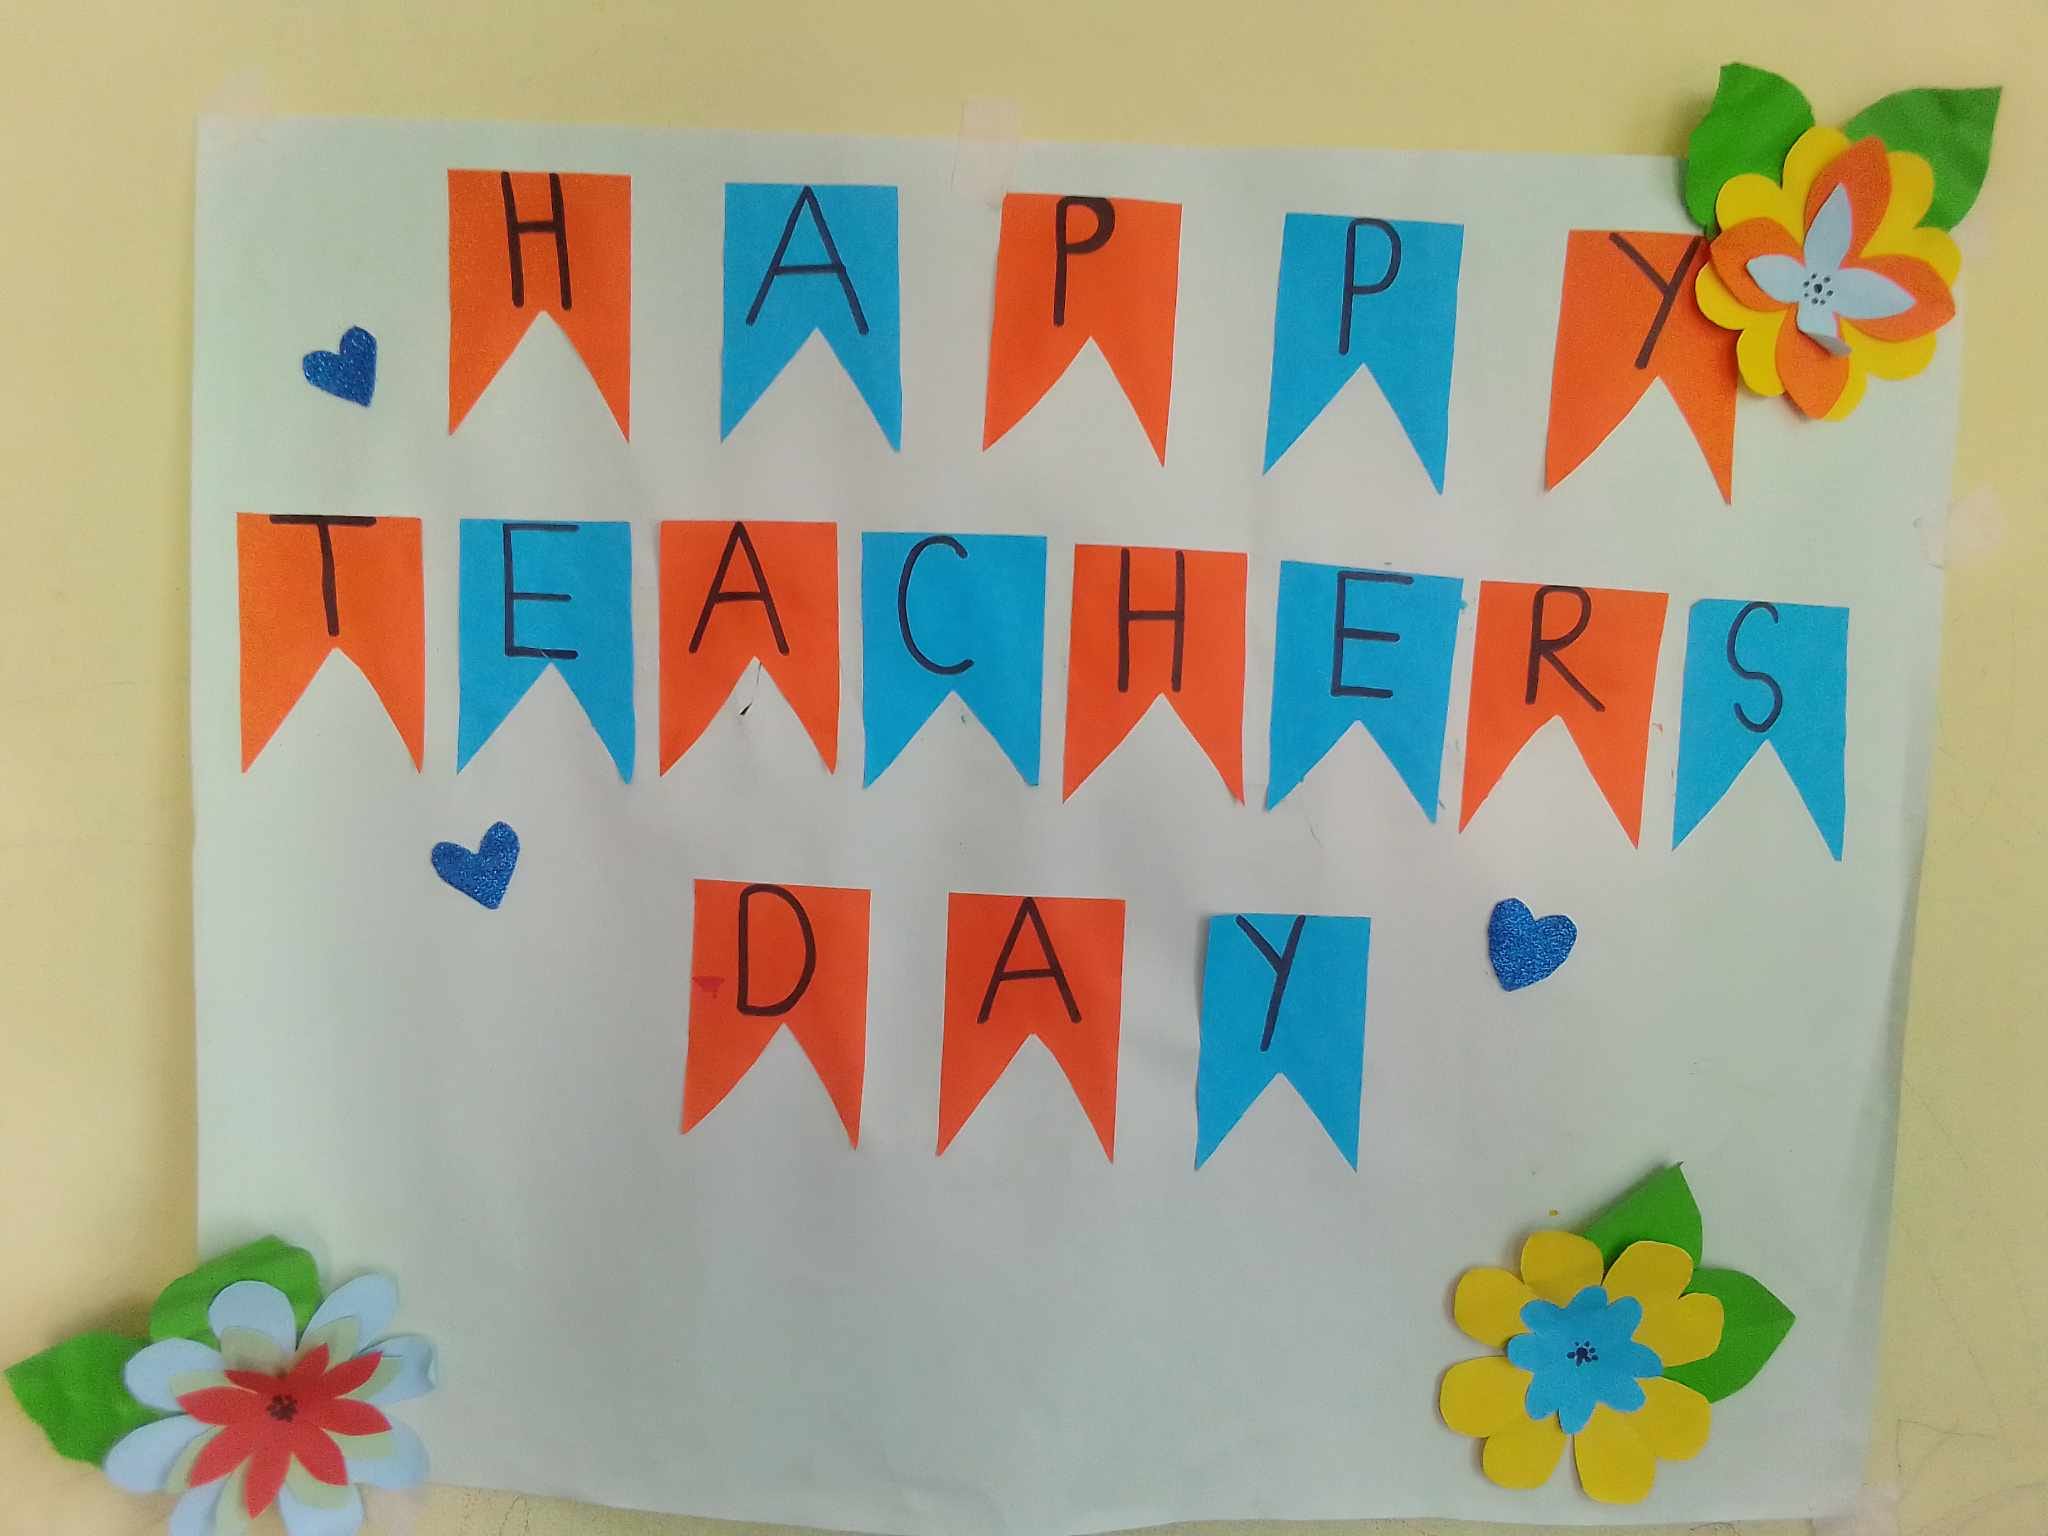 HAPPY
TEACHERS
DAY